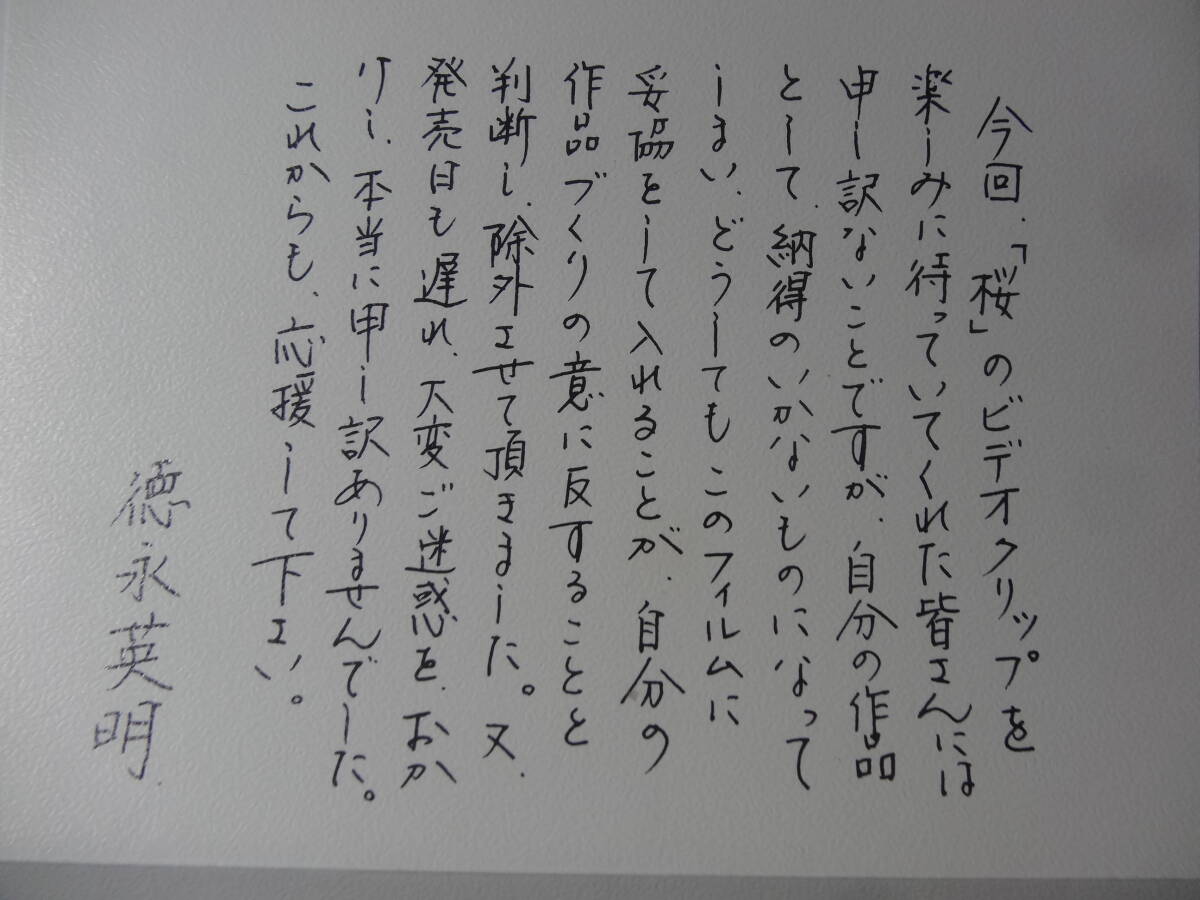 今回、「桜」のビデオクリップを
楽しみに待っていてくれた皆さんには
申し訳ないことですが、自分の作品
として、納得のいかないものになって
しまい、どうしてもこのフィルムに
妥協をして入れることが、自分の
作品づくりの意に反することと
判断し、除外させて頂きました。又、
発売日も遅れ、大変ご迷惑を、おか
けし、本当に申し訳ありませんでした。
これからも、応援して下さい。
徳永英明